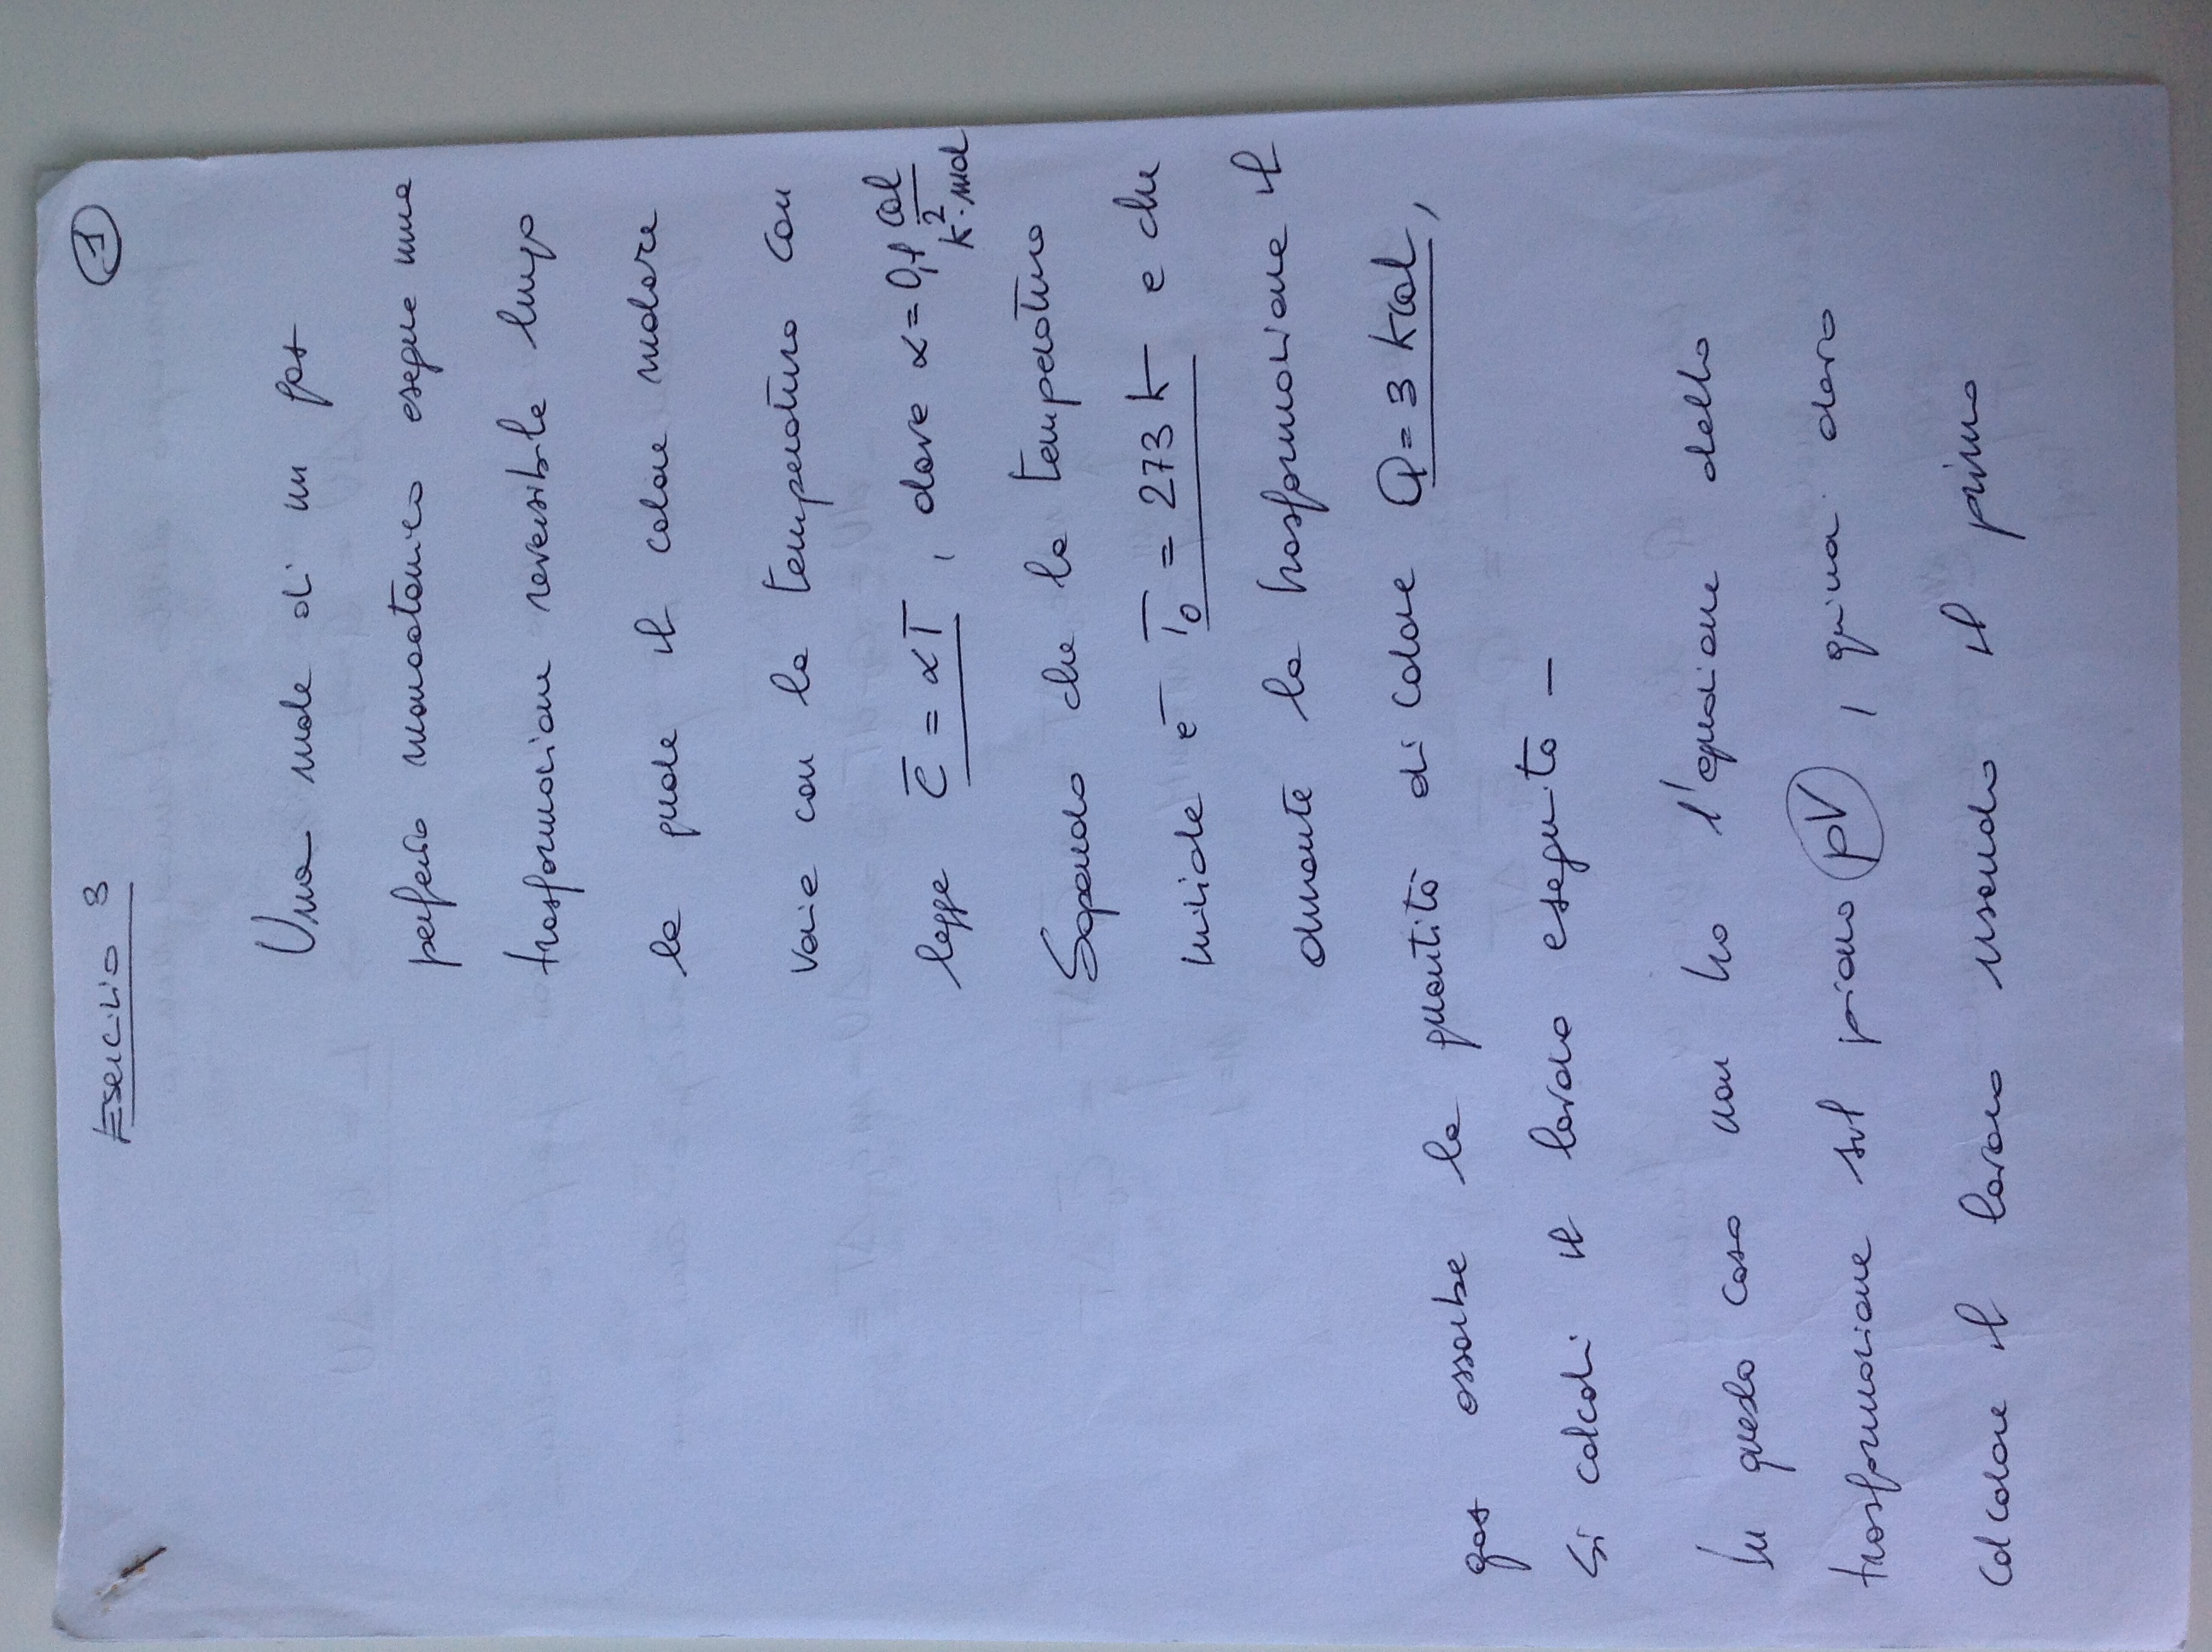 Esercizio 3
1
Una mole di un gas
perfetto monoatomico esegue una
trasformazione reversibile lungo
la quale il calore molare
varia con la temperatura con
legge c̅ = αT , dove α = 0,1 cal
K²·mol
Sapendo che la temperatura
iniziale è T₀ = 273 K e che
durante la trasformazione il
gas assorbe la quantità di calore Q = 3 kcal,
si calcoli il lavoro eseguito –
In questo caso non ho l'equazione della
trasformazione sul piano pV , quindi devo
calcolare il lavoro usando il primo